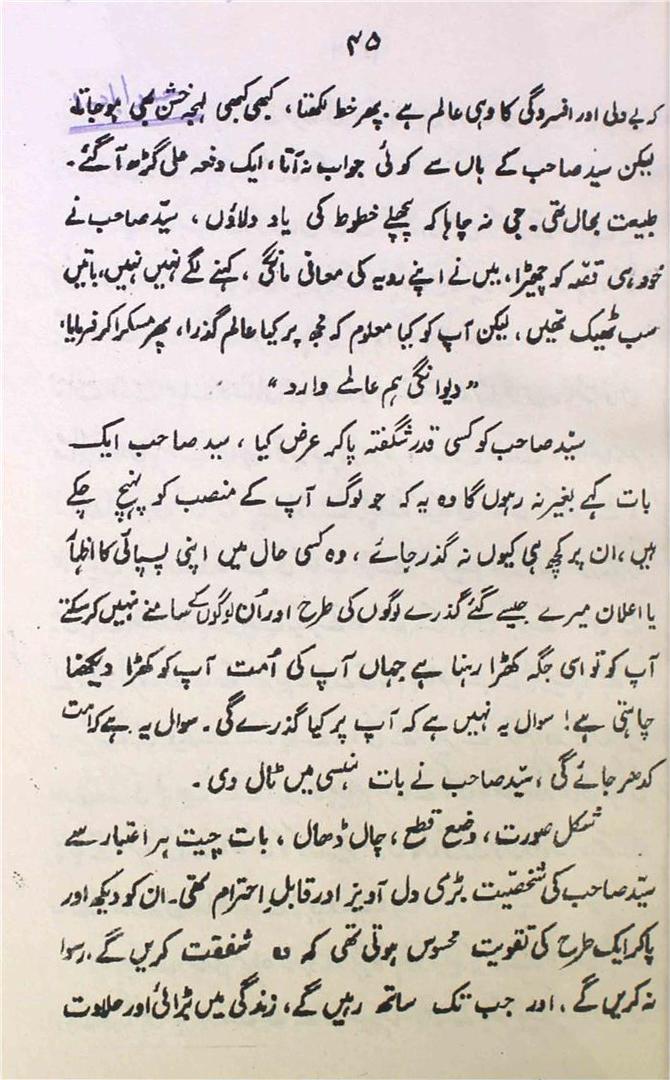 ۴۵
کہ بے دلی اور افسردگی کا وہی عالم ہے۔ پھر خط لکھتا، کبھی کبھی لہجہ خشن بھی ہو جاتے
لیکن سید صاحب کے ہاں سے کوئی جواب نہ آتا، ایک دفعہ علی گڑھ آ گئے۔
طبیعت بحال تھی۔ جی نہ چاہا کہ پچھلے خطوط کی یاد دلاؤں، سیّد صاحب نے
خود ہی قصّہ کو چھیڑا، میں نے اپنے رویہ کی معافی مانگی، کہنے لگے نہیں نہیں، باتیں
سب ٹھیک تھیں، لیکن آپ کو کیا معلوم کہ مجھ پر کیا عالم گذرا، پھر مسکرا کر فرمایا،
”دیوانگی ہم عالمے دارد“
سیّد صاحب کو کسی قدر شگفتہ پا کر عرض کیا، سید صاحب ایک
بات کہے بغیر نہ رہوں گا وہ یہ کہ جو لوگ آپ کے منصب کو پہنچ چکے
ہیں، ان پر کچھ ہی کیوں نہ گذر جائے، وہ کسی حال میں اپنی پسپائی کا اظہار
یا اعلان میرے جیسے گئے گذرے لوگوں کی طرح اور اُن لوگوں کے سامنے نہیں کر سکتے
آپ کو تو اسی جگہ کھڑا رہنا ہے جہاں آپ کی اُمت آپ کو کھڑا دیکھنا
چاہتی ہے! سوال یہ نہیں ہے کہ آپ پر کیا گذرے گی۔ سوال یہ ہے کہ امت
کدھر جائے گی، سیّد صاحب نے بات ہنسی میں ٹال دی۔
شکل صورت، وضع قطع، چال ڈھال، بات چیت ہر اعتبار سے
سیّد صاحب کی شخصیّت بڑی دل آویز اور قابلِ احترام تھی۔ ان کو دیکھ اور
پا کر ایک طرح کی تقویت محسوس ہوتی تھی کہ وہ شفقت کریں گے، رسوا
نہ کریں گے۔ اور جب تک ساتھ رہیں گے، زندگی میں بڑائی اور حلاوت